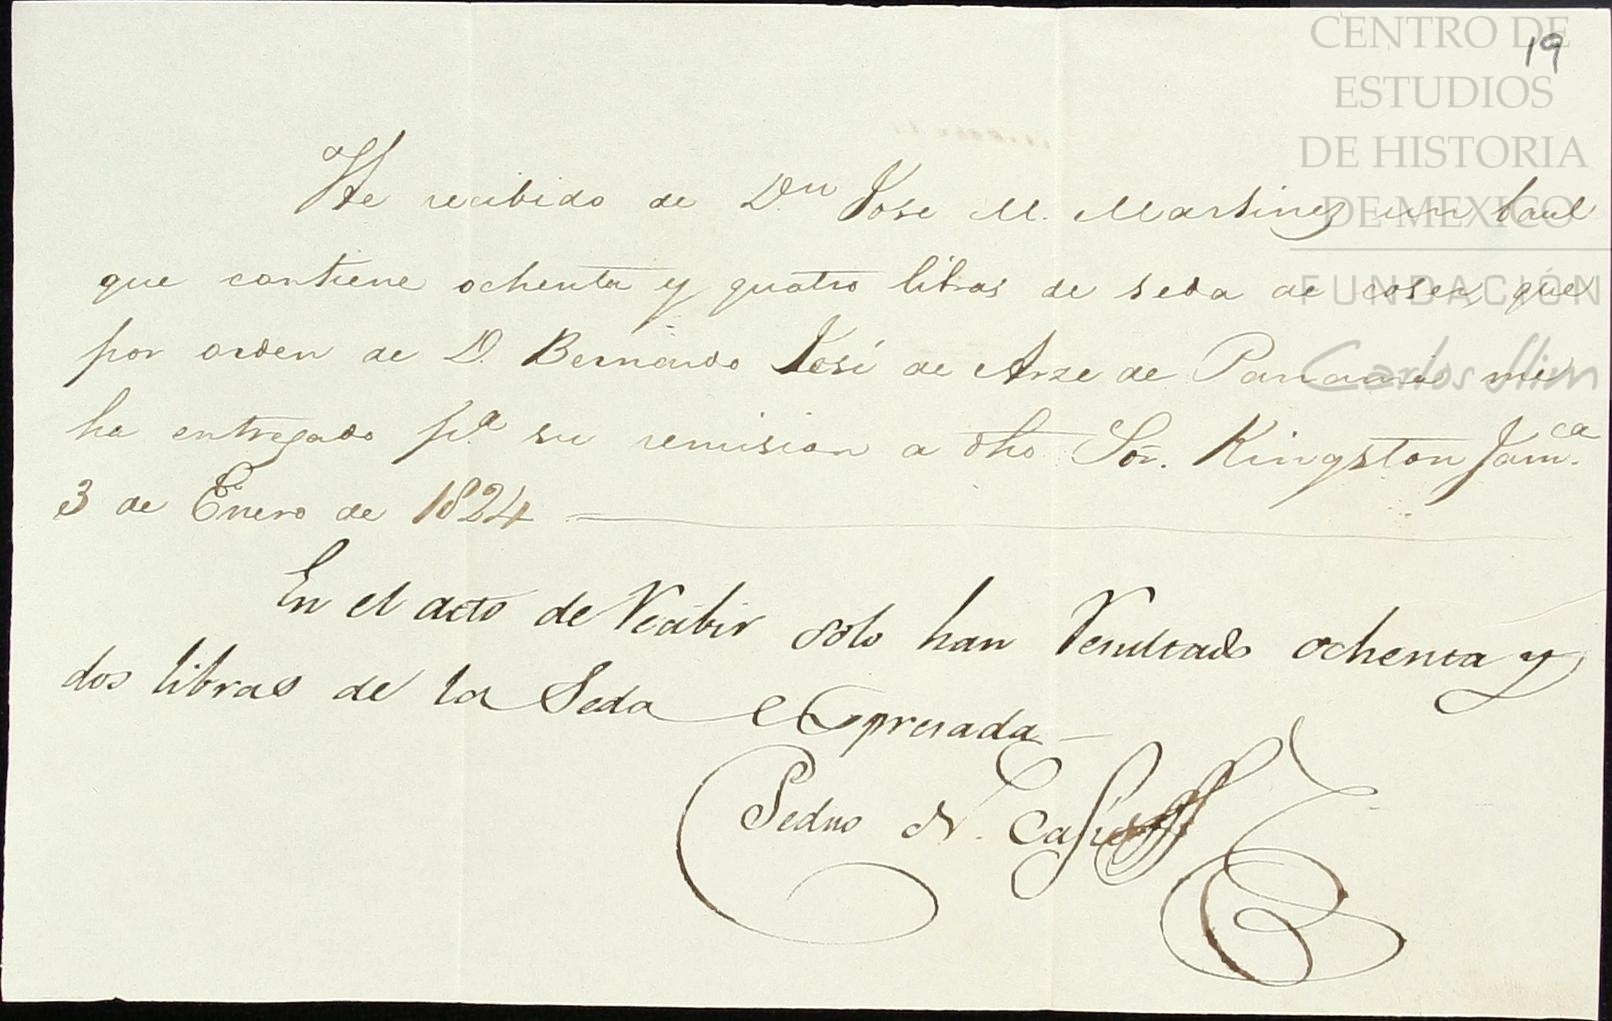 19
CENTRO DE
ESTUDIOS
DE HISTORIA
DE MEXICO
FUNDACIÓN
Carlos Slim
He recibido de Dn Jose M. Martinez un baul
que contiene ochenta y quatro libras de seda de coser, que
por orden de D. Bernardo José de Arze de Panamá me
ha entregado pa su remision a dho Sor. Kingston Jamca.
3 de Enero de 1824
En el acto de Recibir solo han Resultado ochenta y
dos libras de la Seda expresada
Pedro N.